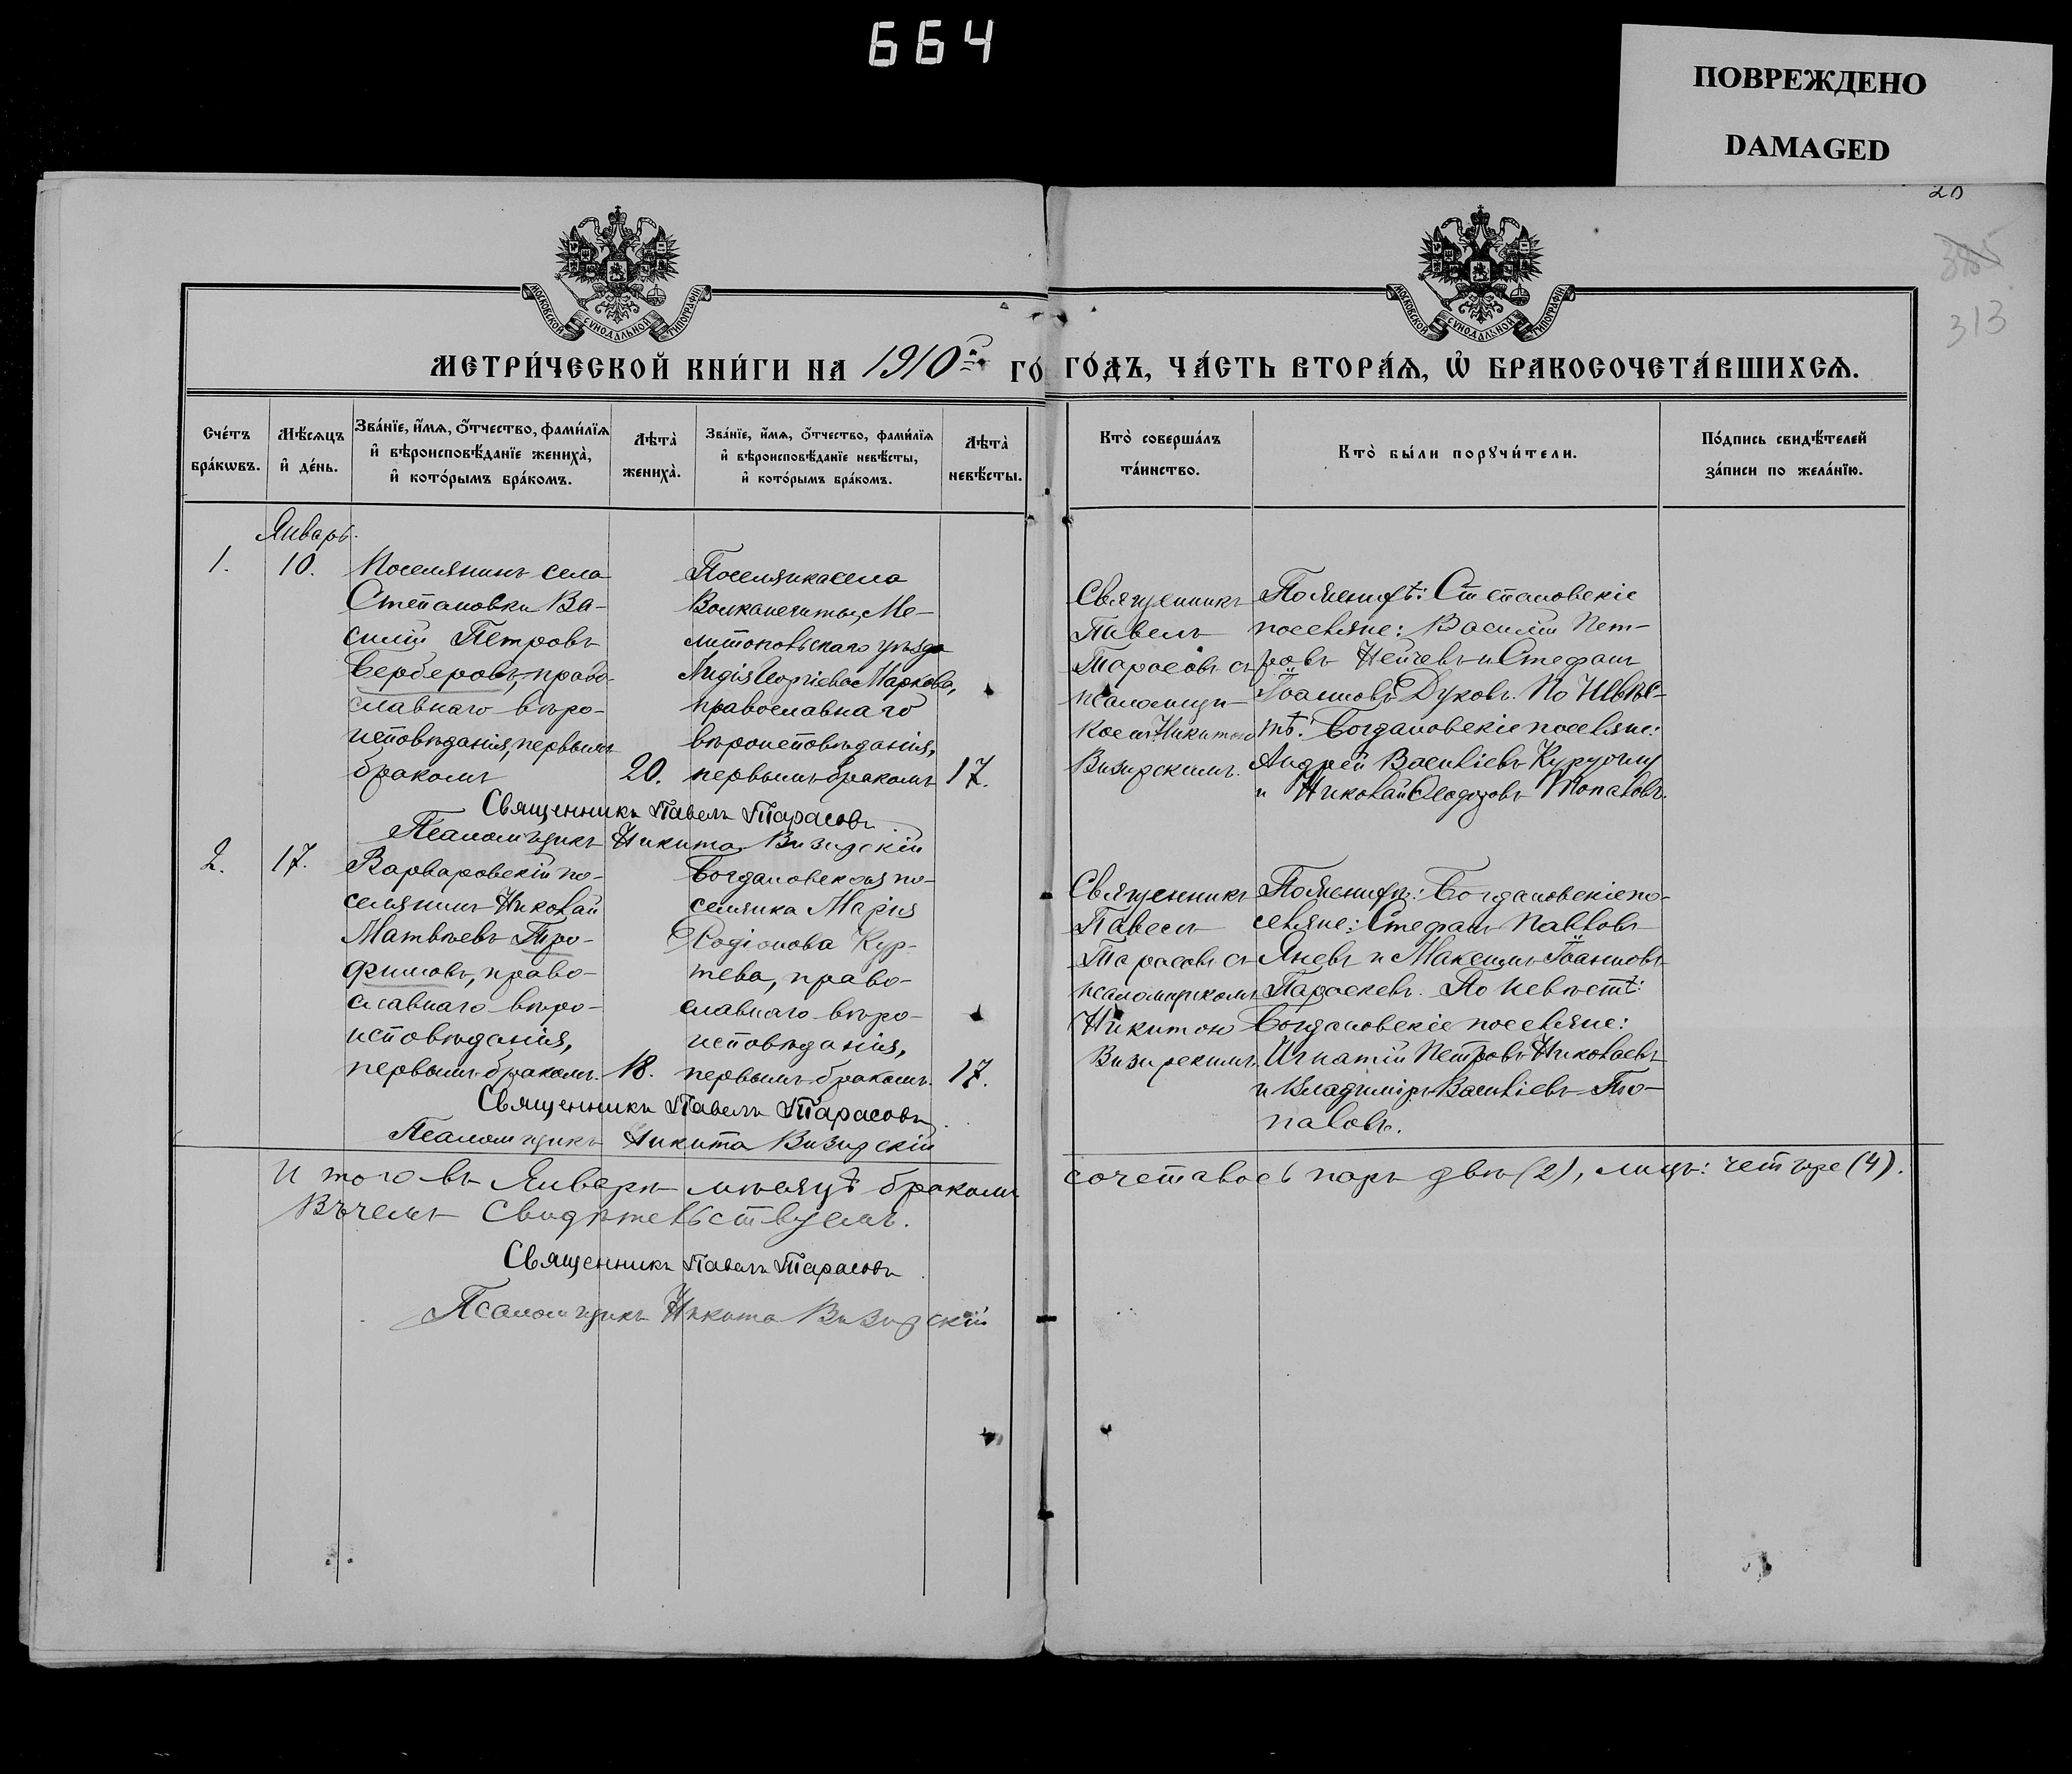 664
ПОВРЕЖДЕНО
DAMAGED
20
385
313
МОСКОВСКОЙ СѴНОДАЛЬНОЙ ТИПОГРАФІИ
МОСКОВСКОЙ СѴНОДАЛЬНОЙ ТИПОГРАФІИ
МЕТРИ́ЧЕСКОЙ КНИ́ГИ НА 1910 ГО
ГО́ДЪ, ЧА́СТЬ ВТОРА́Ѧ, Ѽ БРАКОСОЧЕТА́ВШИХСѦ.
Сче́тъ
бра́кѡвъ.
Мѣ́сѧцъ
и҆ де́нь.
Зва́нїе, и҆́мѧ, ѻ҆́тчество, фами́лїѧ
и҆ вѣроисповѣ́данїе женихà,
и҆ кото́рымъ бра́комъ.
Лѣ́тà
женихà.
Зва́нїе, и҆́мѧ, ѻ҆́тчество, фами́лїѧ
и҆ вѣроисповѣ́данїе невѣ́сты,
и҆ кото́рымъ бра́комъ.
Лѣ́тà
невѣ́сты.
Кто̀ соверша́лъ
та́инство.
Кто̀ бы́ли порꙋчи́тели.
По́дпись свидѣ́телей
за́писи по жела́нїю.
Январь.
1.
10.
Поселянинъ села
Степановки Ва-
силій Петровъ
Берберовъ, право-
славнаго вѣро-
исповѣданія, первымъ
бракомъ
20.
Поселянка села
Волканешты, Ме-
литопольскаго уѣзда
Лидія Георгіева Маркова,
православнаго
вѣроисповѣданія,
первымъ бракомъ
17.
Священникъ
Павелъ
Тарасовъ съ
псаломщи-
комъ Никитою
Визирскимъ.
По женихѣ: Степановскіе
поселяне: Василій Пет-
ровъ Нейчевъ и Стефанъ
Іоанновъ Дуковъ. По невѣс-
тѣ: Богдановскіе поселяне:
Андрей Васильевъ Куру
и Николай Ѳеодоровъ Топаловъ.
Священникъ Павелъ Тарасовъ
Псаломщикъ Никита Визирскій
2.
17.
Варваровскій по-
селянинъ Николай
Матвѣевъ Тро-
фимовъ, право-
славнаго вѣро-
исповѣданія,
первымъ бракомъ.
18.
Богдановская по-
селянка Марія
Родіонова Кур-
тева, право-
славнаго вѣро-
исповѣданія,
первымъ бракомъ.
17.
Священникъ
Павелъ
Тарасовъ съ
псаломщикомъ
Никитою
Визирскимъ.
По женихѣ: Богдановскіе по-
селяне: Стефанъ Павловъ
Яневъ и Максимъ Іоанновъ
Параскевъ. По невѣстѣ:
Богдановскіе поселяне:
Игнатій Петровъ Николаевъ
и Владиміръ Васильевъ То-
паловъ.
Священникъ Павелъ Тарасовъ
Псаломщикъ Никита Визирскій
Итого въ Январѣ мѣсяцѣ бракомъ
сочеталось паръ двѣ (2), лицъ: четыре (4).
Въ чемъ свидѣтельствуемъ.
Священникъ Павелъ Тарасовъ
Псаломщикъ Никита Визирскій